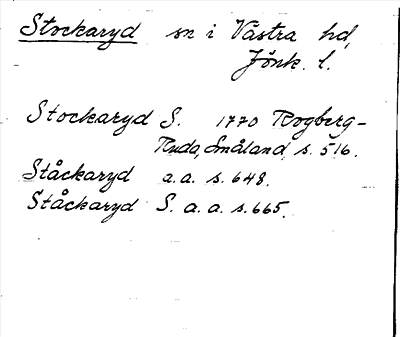 Stockaryd sn i Västra hd,
Jönk. l.
Stockaryd S. 1770 Rogberg-
Ruda, Småland, s. 516.
Ståckaryd a.a. s. 648.
Ståckaryd S. a.a. s. 665.